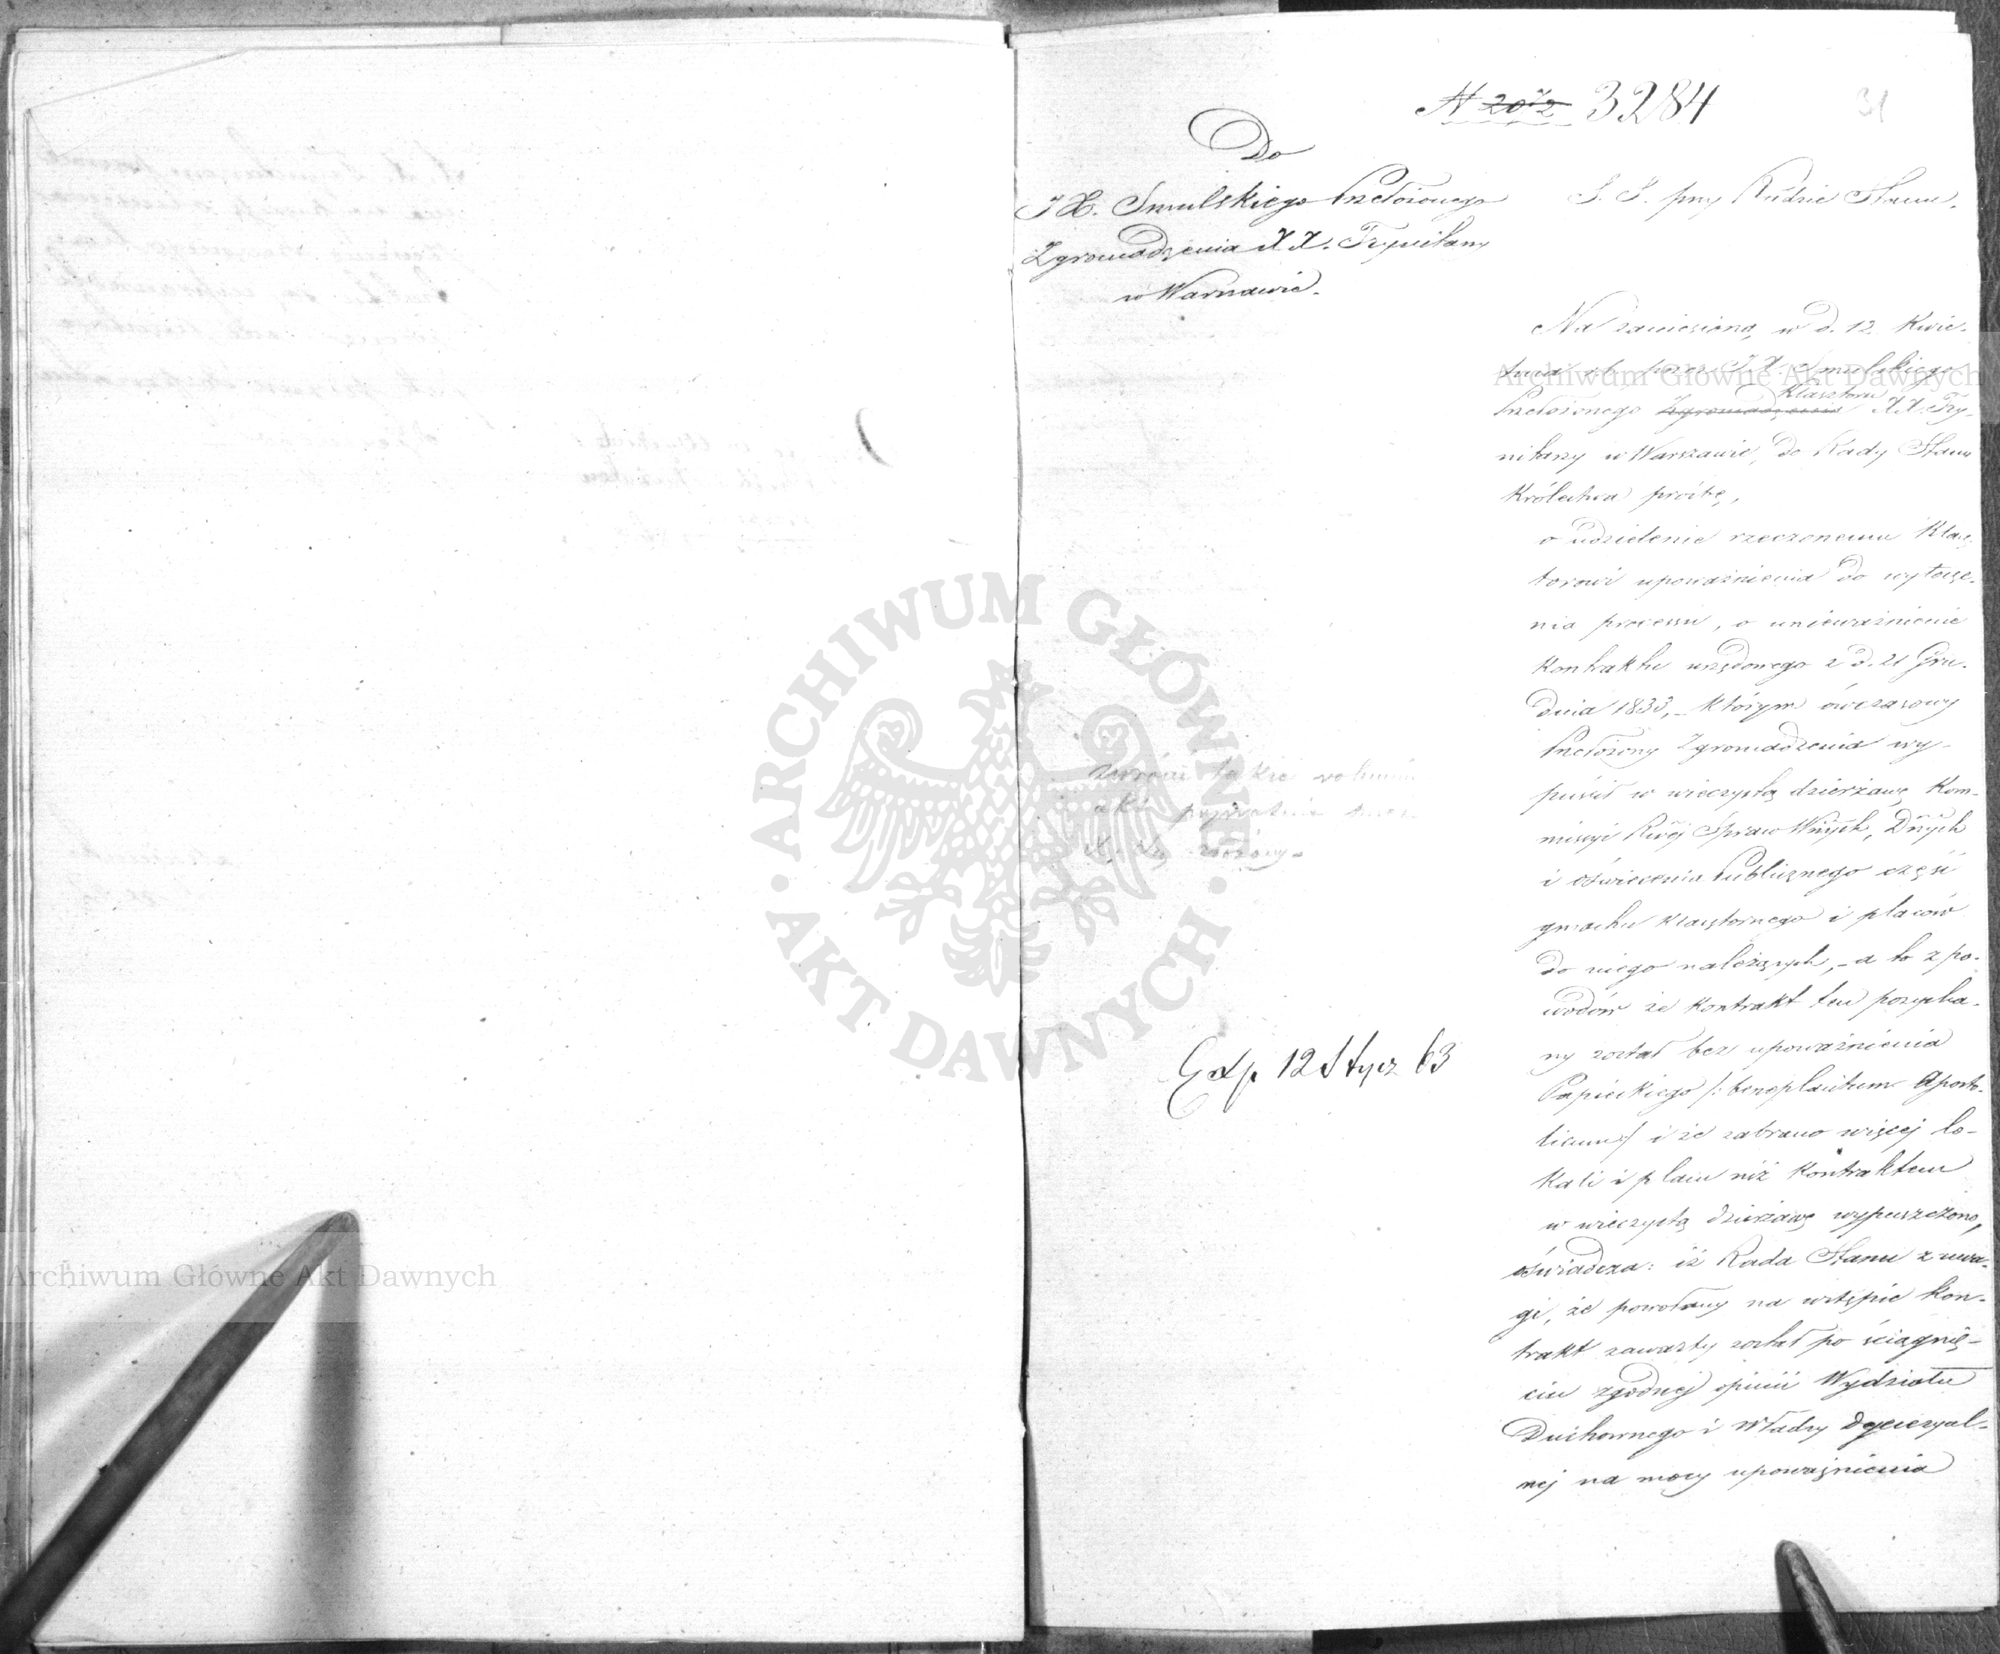 N 2072 3284
31
Do
JX. Smulskiego Przełożonego
Zgromadzenia XX. Trynitarzy
w Warszawie.
S. S. przy Radzie Stanu.
Na zaniesioną w d. 12 Kwie-
tnia rb. przez JX. Smulskiego
Przełożonego Zgromadzenia Klasztoru XX. Try-
nitarzy w Warszawie, do Rady Stanu
Królestwa prośbę,
o udzielenie rzeczonemu Klasz-
torowi upoważnienia do wytocze-
nia processu, o unieważnienie
Kontraktu urzędowego z d. 21 Gru-
dnia 1833, – którym ówczasowy
Przełożony Zgromadzenia wy-
puścił w wieczystą dzierżawę Kom-
missyi Rwéj Spraw Wnych, Dnych
i Oświecenia Publicznego część
gmachu Klasztornego i placów
do niego należących, – a to z po-
wodów że Kontrakt ten pozyska-
ny został bez upoważnienia
Papieskiego /: beneplacitum Aposto-
licum :/ i że zabrano więcej lo-
kali i placu niż Kontraktem
w wieczystą dzierżawę wypuszczono,
oświadcza: iż Rada Stanu z uwa-
gi, że powołany na wstępie Kon-
trakt zawarty został po ściągnię-
ciu zgodnej opinii Wydziału
Duchownego i Władzy Dyecezyal-
nej na mocy upoważnienia
zwrócić także
akt
Exp 12 Stycz 63
Archiwum Główne Akt Dawnych
Archiwum Główne Akt Dawnych
ARCHIWUM GŁÓWNE
AKT DAWNYCH